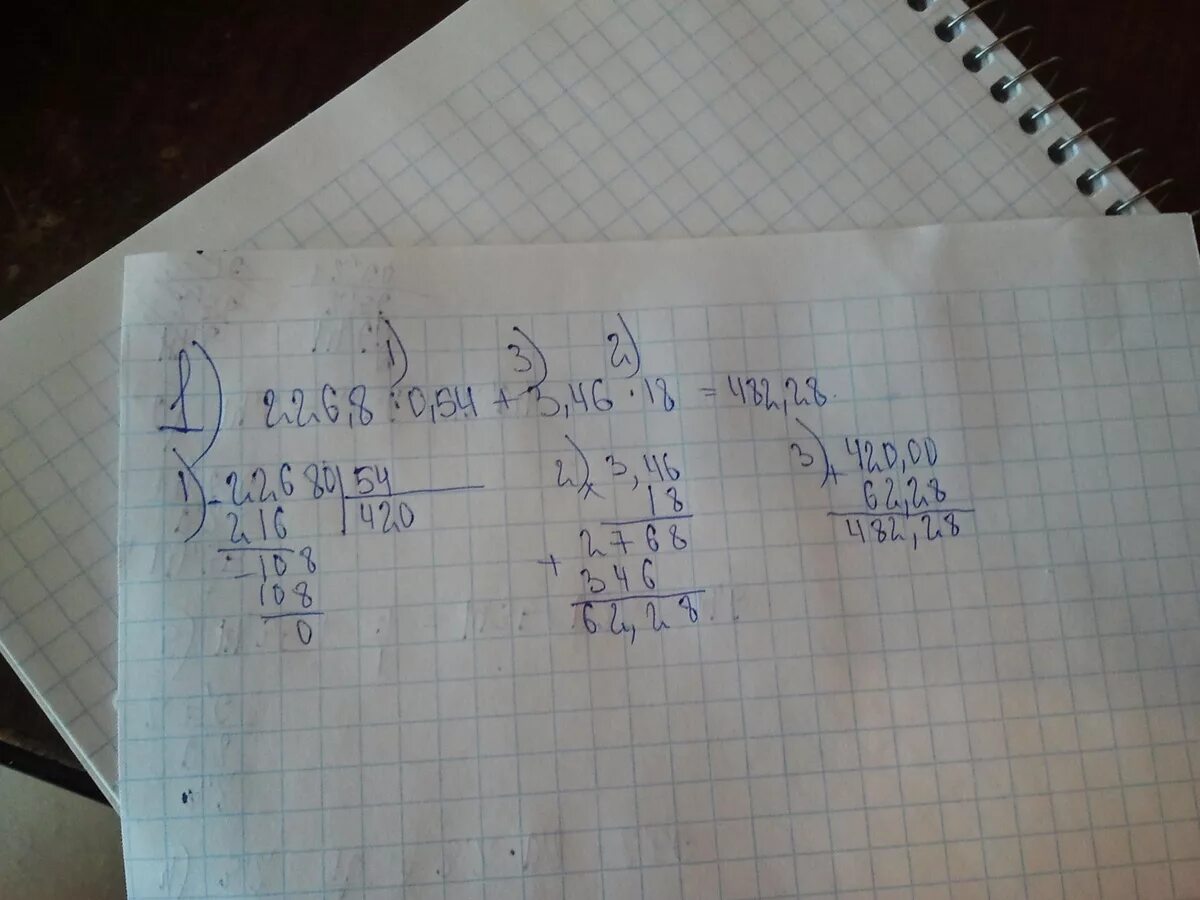 1) 3) 2)
1) 226,8 : 0,54 + 3,46 · 18 = 482,28.
1) - 22680 | 54
216 | 420
- 108
108
0
2) × 3,46
18
+ 2768
346
62,28
3) + 420,00
62,28
482,28